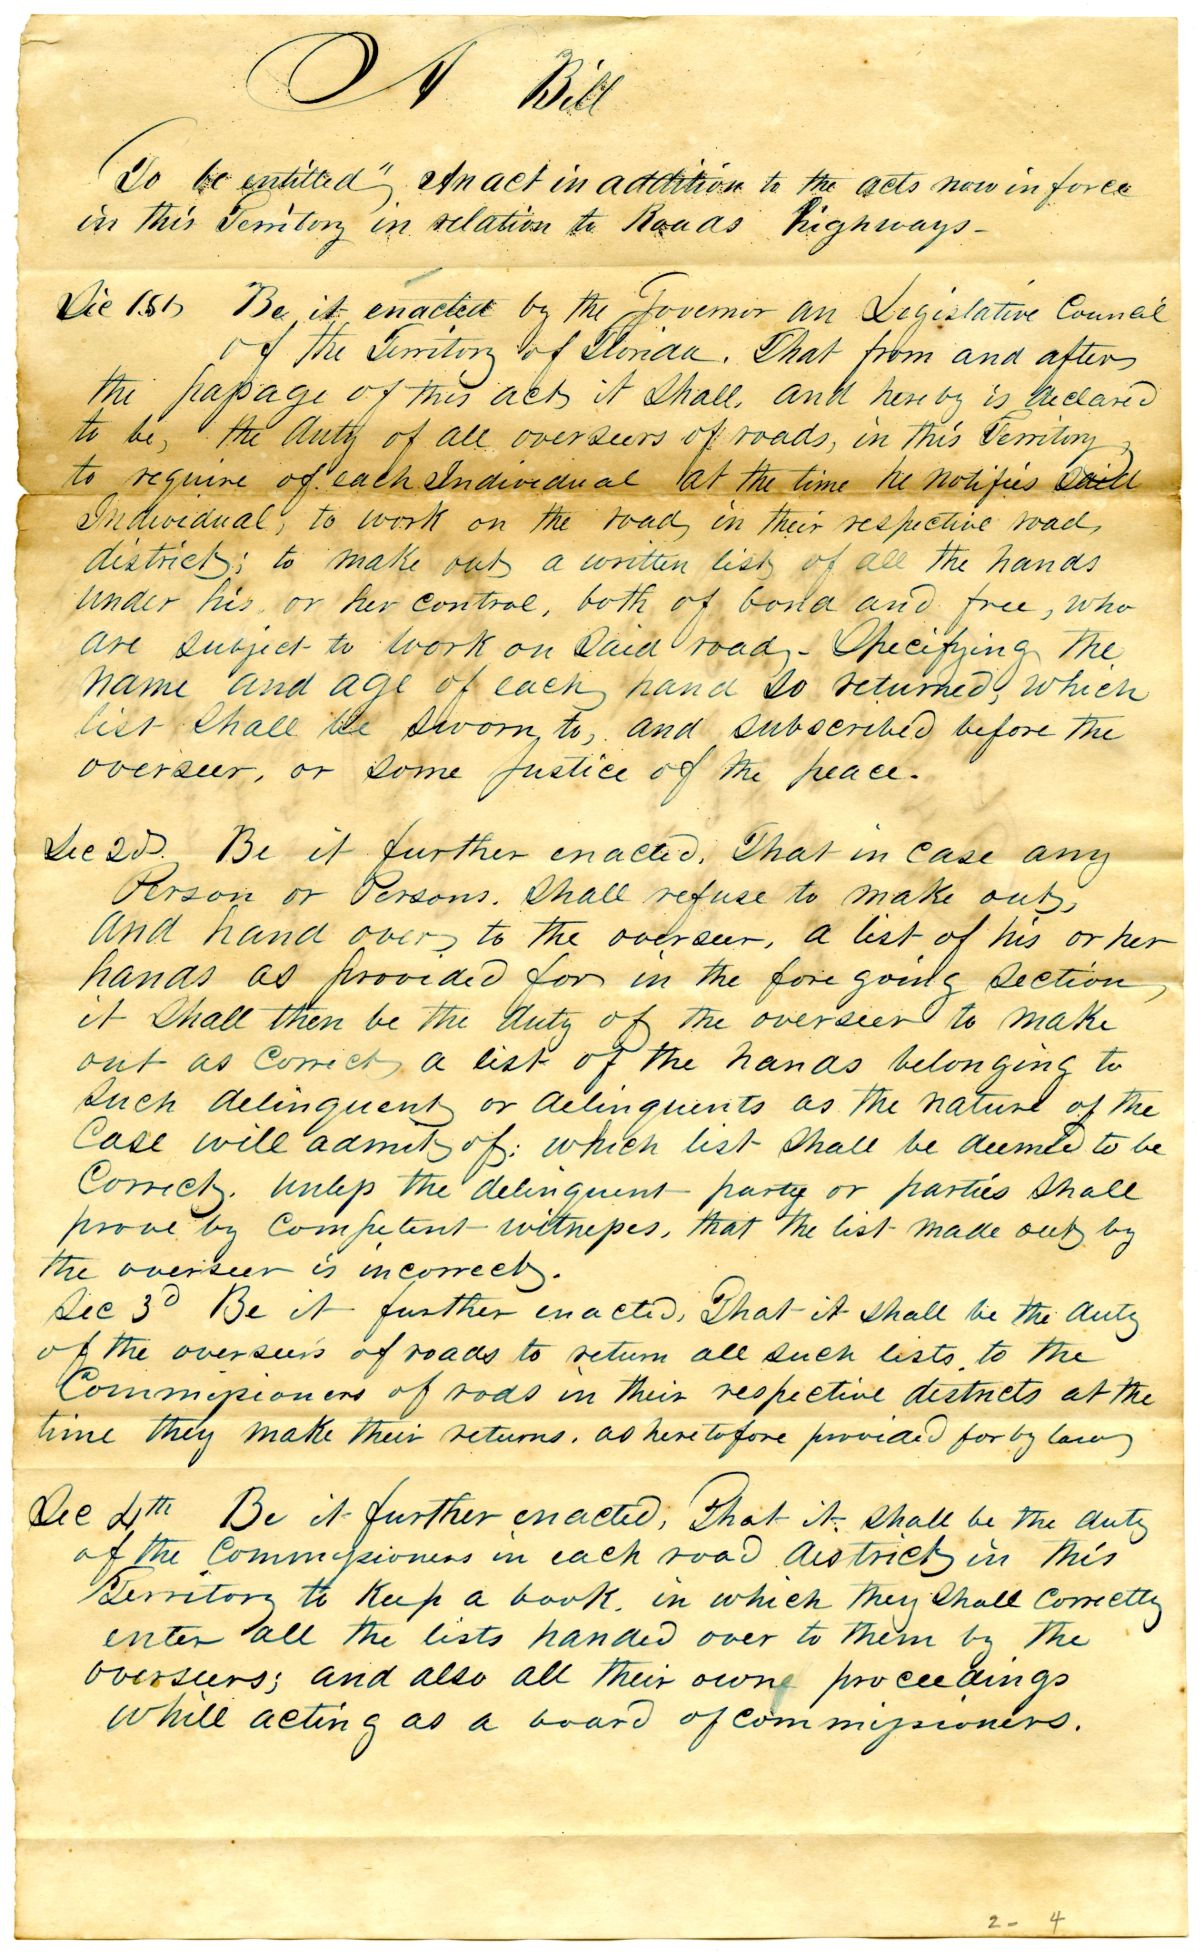 A Bill
To be entitled" An act in addition to the acts now in force
in this Territory in relation to Roads highways-
Sec 1st Be it enacted by the Governor an Legislative Council
of the Territory of Florida. That from and after
the passage of this act it shall, and hereby is declared
to be, the duty of all overseers of roads, in this Territory,
to require of each Individual at the time he notifies said
Individual, to work on the road, in their respective road
district; to make out a written list of all the hands
under his or her control, both of bond and free, who
are subject to work on said road,- Specifying the
name and age of each hand so returned, which
list shall be sworn to, and subscribed before the
overseer, or some justice of the peace.
Sec 2d. Be it further enacted, That in case any
Person or Persons. shall refuse to make out,
and hand over, to the overseer, a list of his or her
hands as provided for in the fore going section,
it shall then be the duty of the overseer to make
out as correct a list of the hands belonging to
such delinquent or delinquents as the nature of the
case will admit of: which list shall be deemed to be
correct, unless the delinquent party or parties shall
prove by competent witnesses, that the list made out by
the overseer is incorrect.
Sec 3d Be it further enacted, That it shall be the duty
of the overseers of roads to return all such lists, to the
Commissioners of rods in their respective districts at the
time they make their returns. as heretofore provided for by law
Sec 4th Be it further enacted, That it shall be the duty
of the Commissioners in each road district in this
Territory to keep a book, in which they shall correctly
enter all the lists handed over to them by the
overseers; and also all their owne proceedings
while acting as a board of commissioners.
2- 4